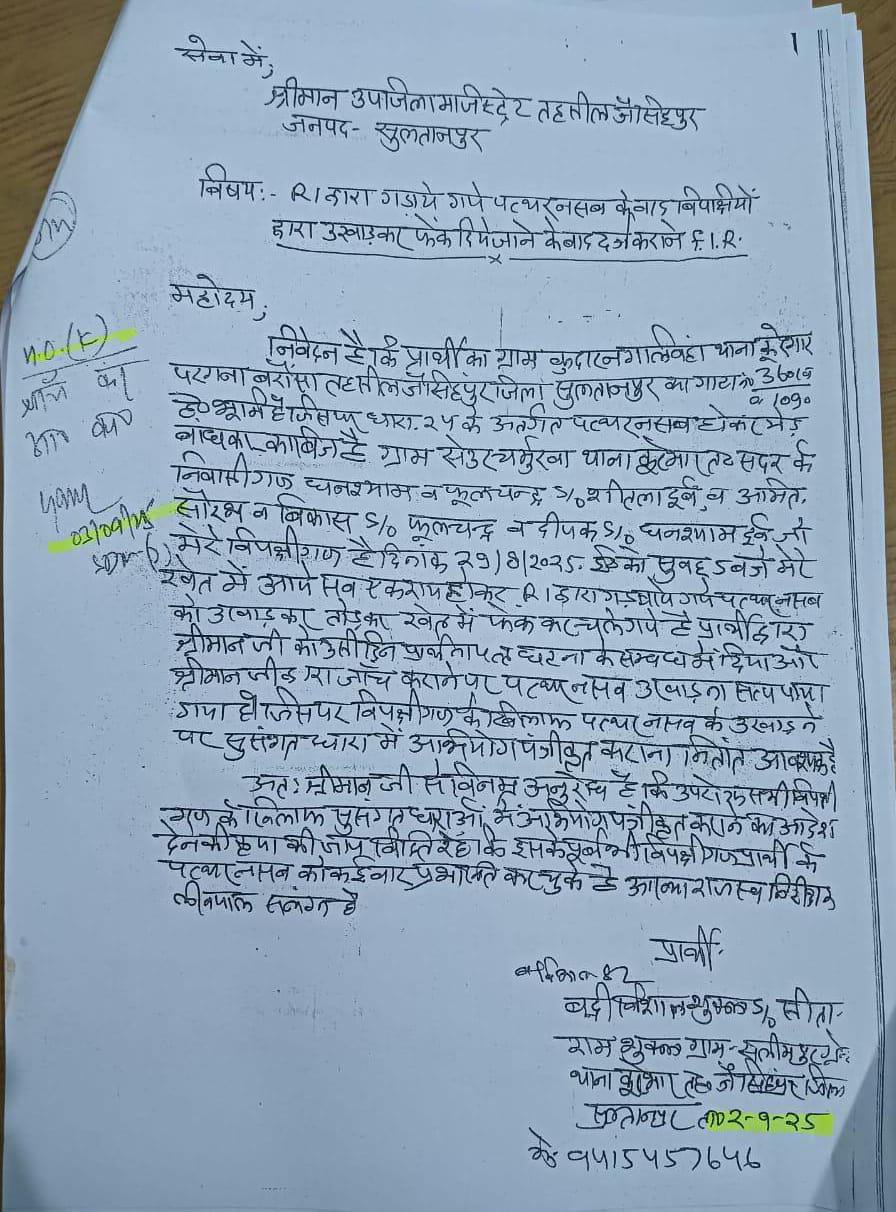 1
सेवा में,
श्रीमान उपजिलामजिस्ट्रेट तहसील जैसिंहपुर
जनपद- सुलतानपुर
विषय:- RI द्वारा गड़ाये गये पत्थर नसब के बाद विपक्षियों
द्वारा उखाड़कर फेंक दिये जाने के बाद दर्ज कराने F.I.R.
महोदय,
निवेदन है कि प्रार्थी का ग्राम थाना कूरेभार
परगना बरौंसा तहसील जैसिंहपुर जिला सुलतानपुर का गाटा सं०
व 1090
भूमि है जिसपर धारा-२४ के अंतर्गत पत्थर नसब होकर मेड़
बांधकर काबिज है ग्राम थाना सदर के
निवासीगण घनश्याम व फूलचन्द्र S/o शीतला दूबे, व अमित,
सौरभ व विकास S/o फूलचन्द्र व दीपक S/o घनश्याम दूबे जो
मेरे विपक्षीगण है दिनांक 29/8/2025 को सुबह 5 बजे मेरे
खेत में आये सब एकराय होकर RI द्वारा गड़वाये गये पत्थर नसब
को उखाड़ कर तोड़कर खेत में फेंक कर चले गये है प्रार्थी द्वारा
श्रीमान जी को उसी दिन प्रार्थना पत्र घटना के सम्बंध में दिया और
श्रीमान जी द्वारा जाँच कराने पर पत्थर नसब उखाड़ना सत्य पाया
गया है जिसपर विपक्षीगण के खिलाफ पत्थर नसब के उखाड़ने
पर सुसंगत धारा में अभियोग पंजीकृत कराना नितांत आवश्यक है
अत: श्रीमान जी से विनम्र अनुरोध है कि उपरोक्त सभी विपक्षी
गण के खिलाफ सुसंगत धाराओं में अभियोग पंजीकृत करने का आदेश
देने की कृपा की जाय विदित रहे कि इसके पूर्व भी विपक्षीगण प्रार्थी के
पत्थर नसब को कई बार प्रभावित कर चुके है आख्या राजस्व निरीक्षक
लेखपाल संलग्न है
प्रार्थी-
बद्री विशाल शुक्ल S/o सीता-
राम शुक्ल ग्राम-
थाना तह० जैसिंहपुर जिला
सुलतानपुर ता० 2-9-25
मो० 9415457646
03/09/25